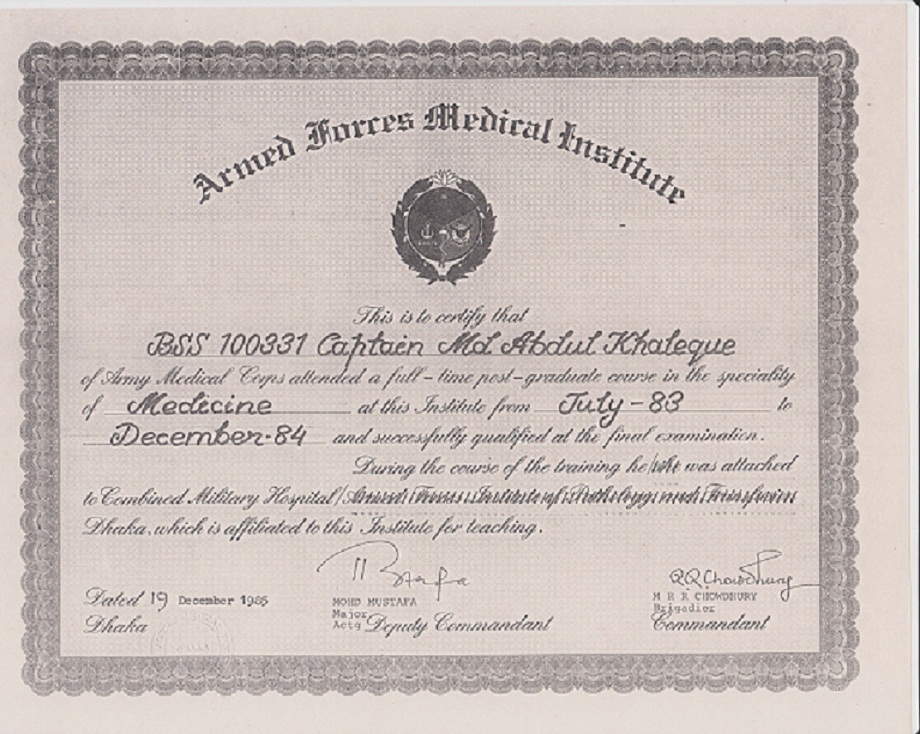 Armed Forces Medical Institute
This is to certify that
BSS 100331 Captain Md Abdul Khaleque
of Army Medical Corps attended a full-time post-graduate course in the speciality
of Medicine at this Institute from July-83 to
December-84 and successfully qualified at the final examination.
During the course of the training he/she was attached
to Combined Military Hospital/Armed Forces Institute of Pathology and Transfusion
Dhaka, which is affiliated to this Institute for teaching.
Dated 19 December 1985
Dhaka
MOHD MUSTAFA
Major
Actg Deputy Commandant
RRChowdhury
M R R CHOWDHURY
Brigadier
Commandant